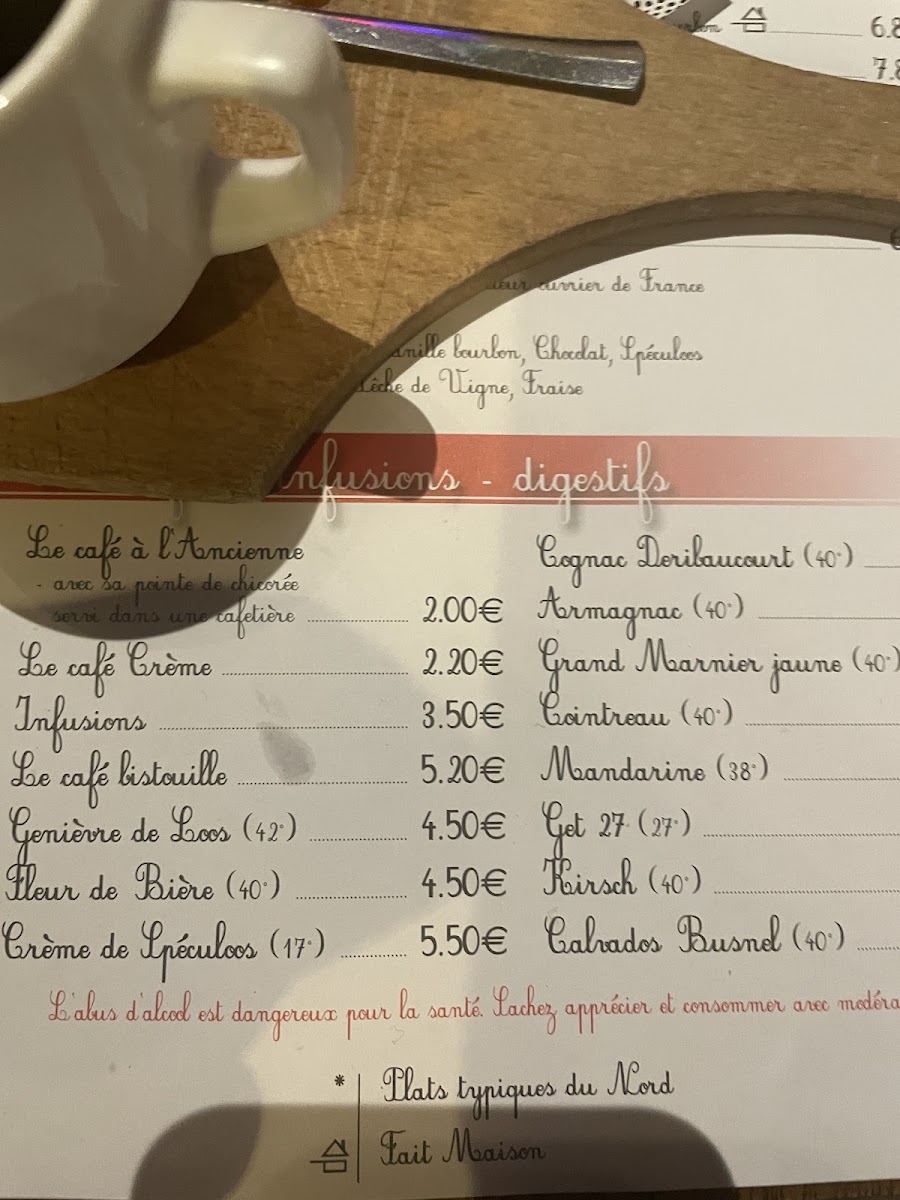 6.8
7.8
de France
bourbon, Chocolat, Spéculoos
de Vigne, Fraise
nfusions - digestifs
Le café à l'Ancienne
- avec sa pointe de chicorée
servi dans une cafetière 2.00€
Le café Crème 2.20€
Infusions 3.50€
Le café bistouille 5.20€
Genièvre de Loos (42°) 4.50€
Fleur de Bière (40°) 4.50€
Crème de Spéculoos (17°) 5.50€
Cognac Deribaucourt (40°)
Armagnac (40°)
Grand Marnier jaune (40°)
Cointreau (40°)
Mandarine (38°)
Get 27 (27°)
Kirsch (40°)
Calvados Busnel (40°)
L'abus d'alcool est dangereux pour la santé. Sachez apprécier et consommer avec modéra
* Plats typiques du Nord
Fait Maison